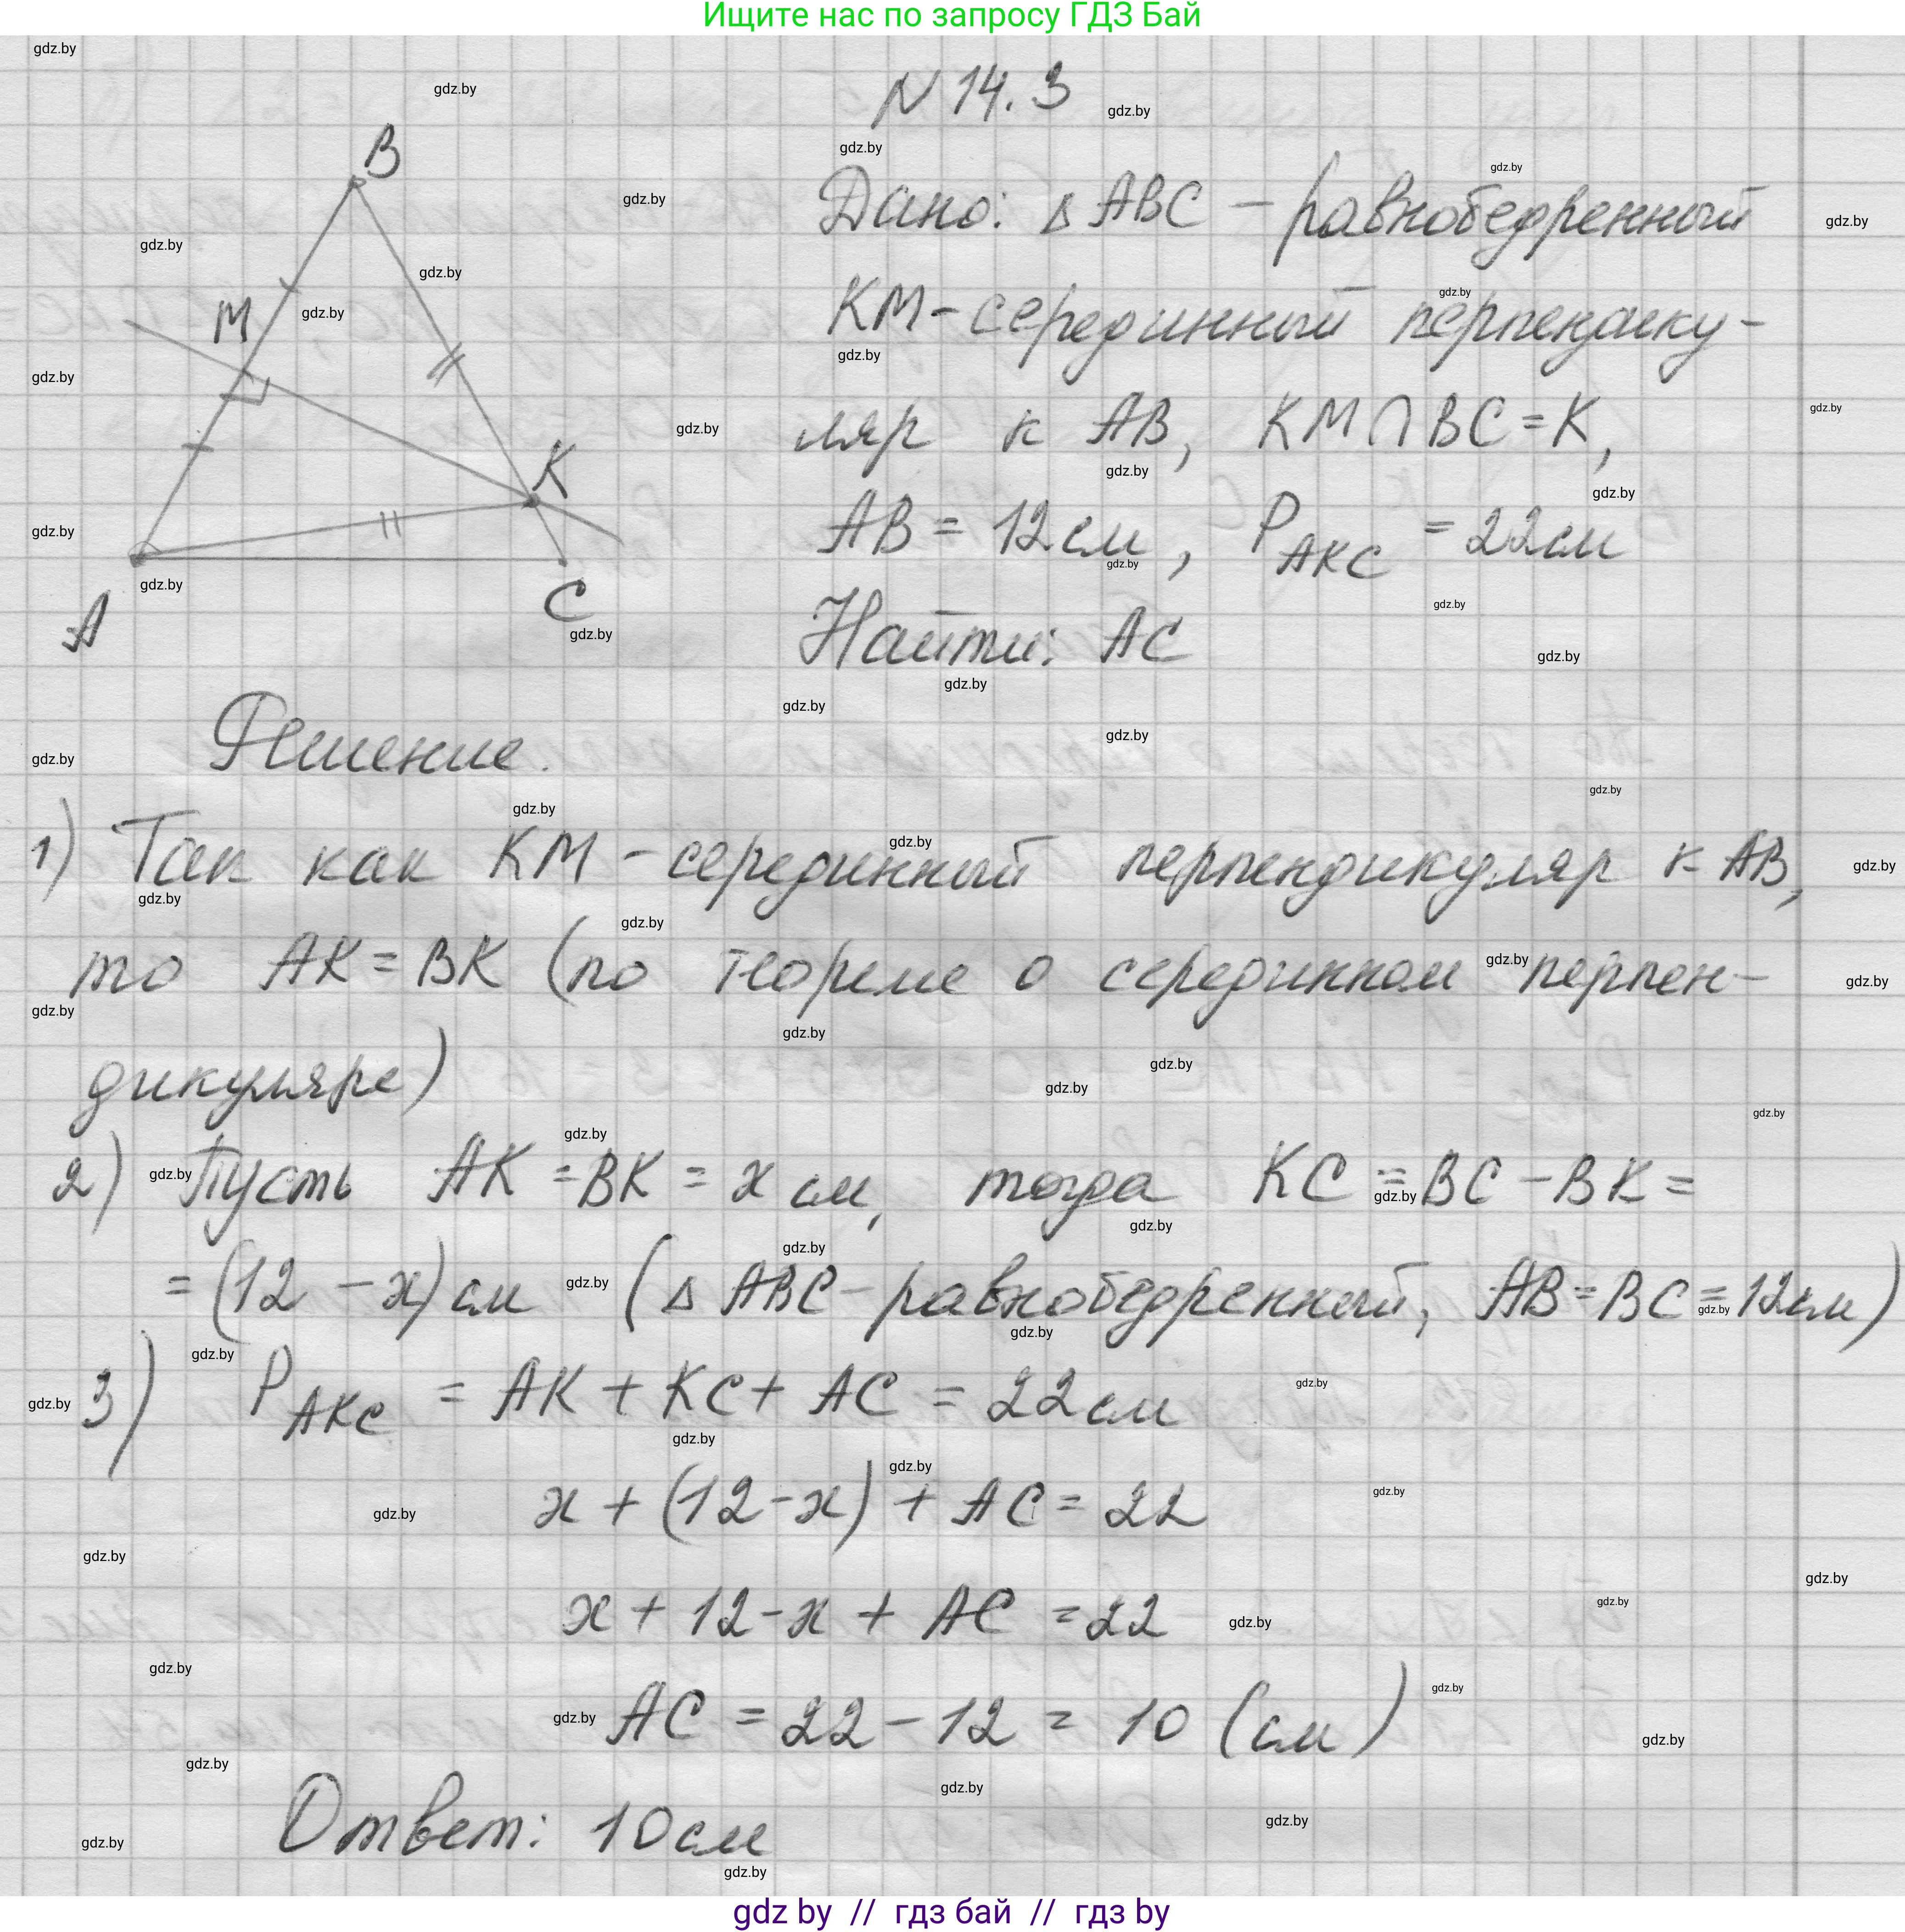 Ищите нас по запросу ГДЗ Бай
N 14.3
Дано: Δ ABC – равнобедренный
KM – серединный перпендику-
ляр к AB, KM ∩ BC = K,
AB = 12 см, P AKC = 22 см
Найти: AC
B
M
K
A
C
Решение.
1) Так как KM – серединный перпендикуляр к AB,
то AK = BK (по теореме о серединном перпен-
дикуляре)
2) Пусть AK = BK = x см, тогда KC = BC – BK =
= (12 – x) см (Δ ABC – равнобедренный, AB = BC = 12 см)
3) P AKC = AK + KC + AC = 22 см
x + (12 – x) + AC = 22
x + 12 – x + AC = 22
AC = 22 – 12 = 10 (см)
Ответ: 10 см
gdz by // гдз бай // гдз by